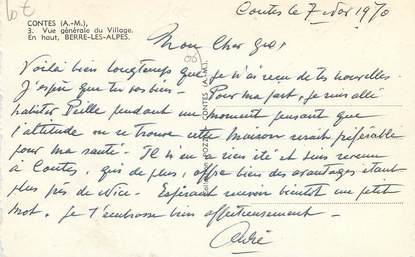 CONTES (A.-M.),
3. Vue générale du Village.
En haut, BERRE-LES-ALPES.
Contes le 7 1970
Mon Cher
Voilà bien longtemps que je n'ai reçu de tes nouvelles
J'espère que tu vas bien - Pour ma part, je suis allé
habiter Peille pendant un moment pensant que
l'altitude ou se trouve cette maison serait préférable
pour ma santé. Il n'en a rien été et suis revenu
à Contes, qui de plus, offre bien des avantages étant
plus près de Nice. Espérant recevoir bientôt un petit
mot, je t'embrasse bien affectueusement -
André
CONTES (A.-M.)